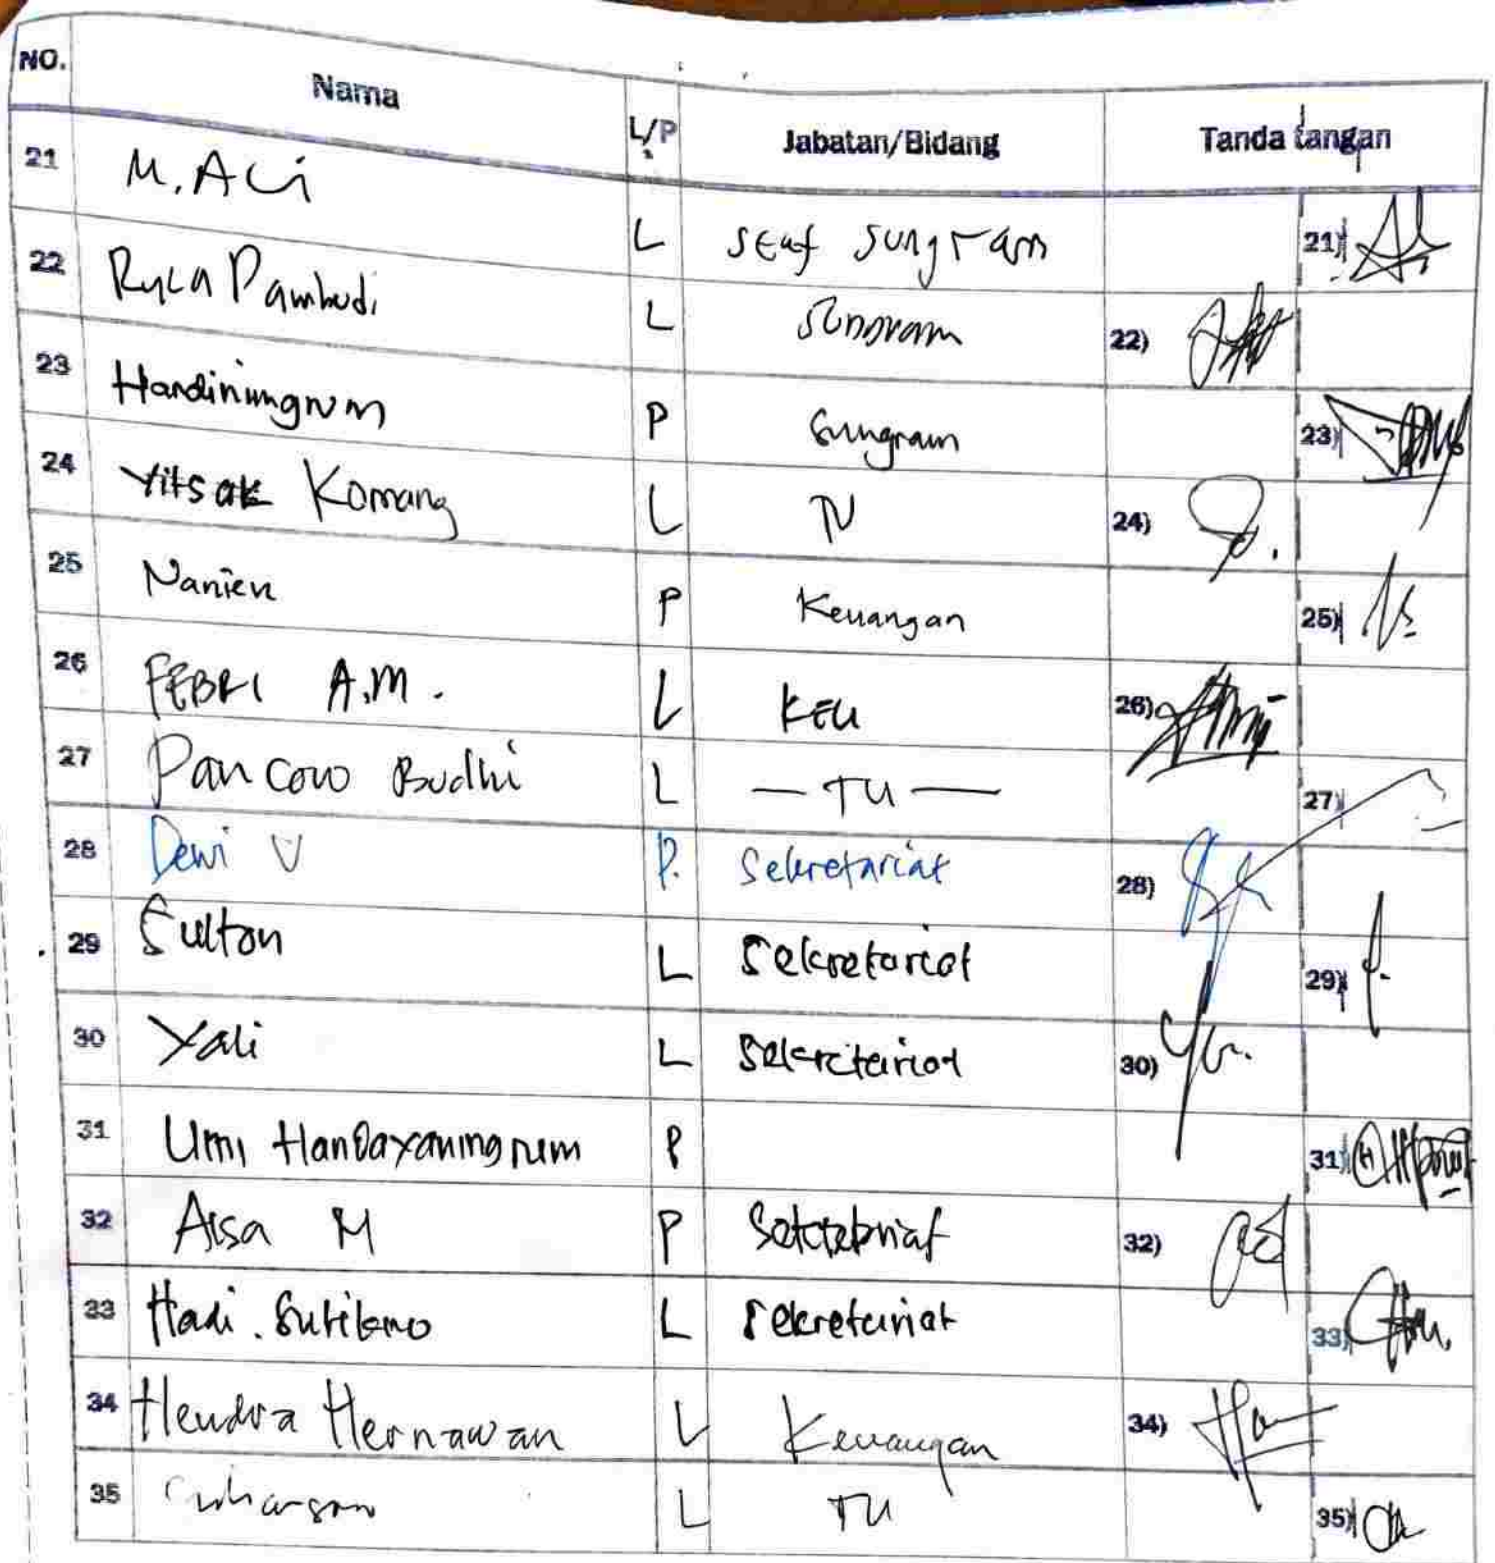 NO. Nama L/P Jabatan/Bidang Tanda tangan
21 M. Ali L Staf Sungram 21)
22 Pambudi L Sungram 22)
23 Handiningrum P Sungram 23)
24 Yitsak Komang L TU 24)
25 Nanien P Keuangan 25)
26 FEBRI A.M. L KEU 26)
27 Pancoro Budhi L — TU — 27)
28 Dewi V P. Sekretariat 28)
29 Sulton L Sekretariat 29)
30 Yali L Sekretariat 30)
31 Umi Handayaningrum P 31)
32 Aisa M P Sekretariat 32)
33 Hadi. L Sekretariat 33)
34 Hendra Hernawan L Keuangan 34)
35 L TU 35)